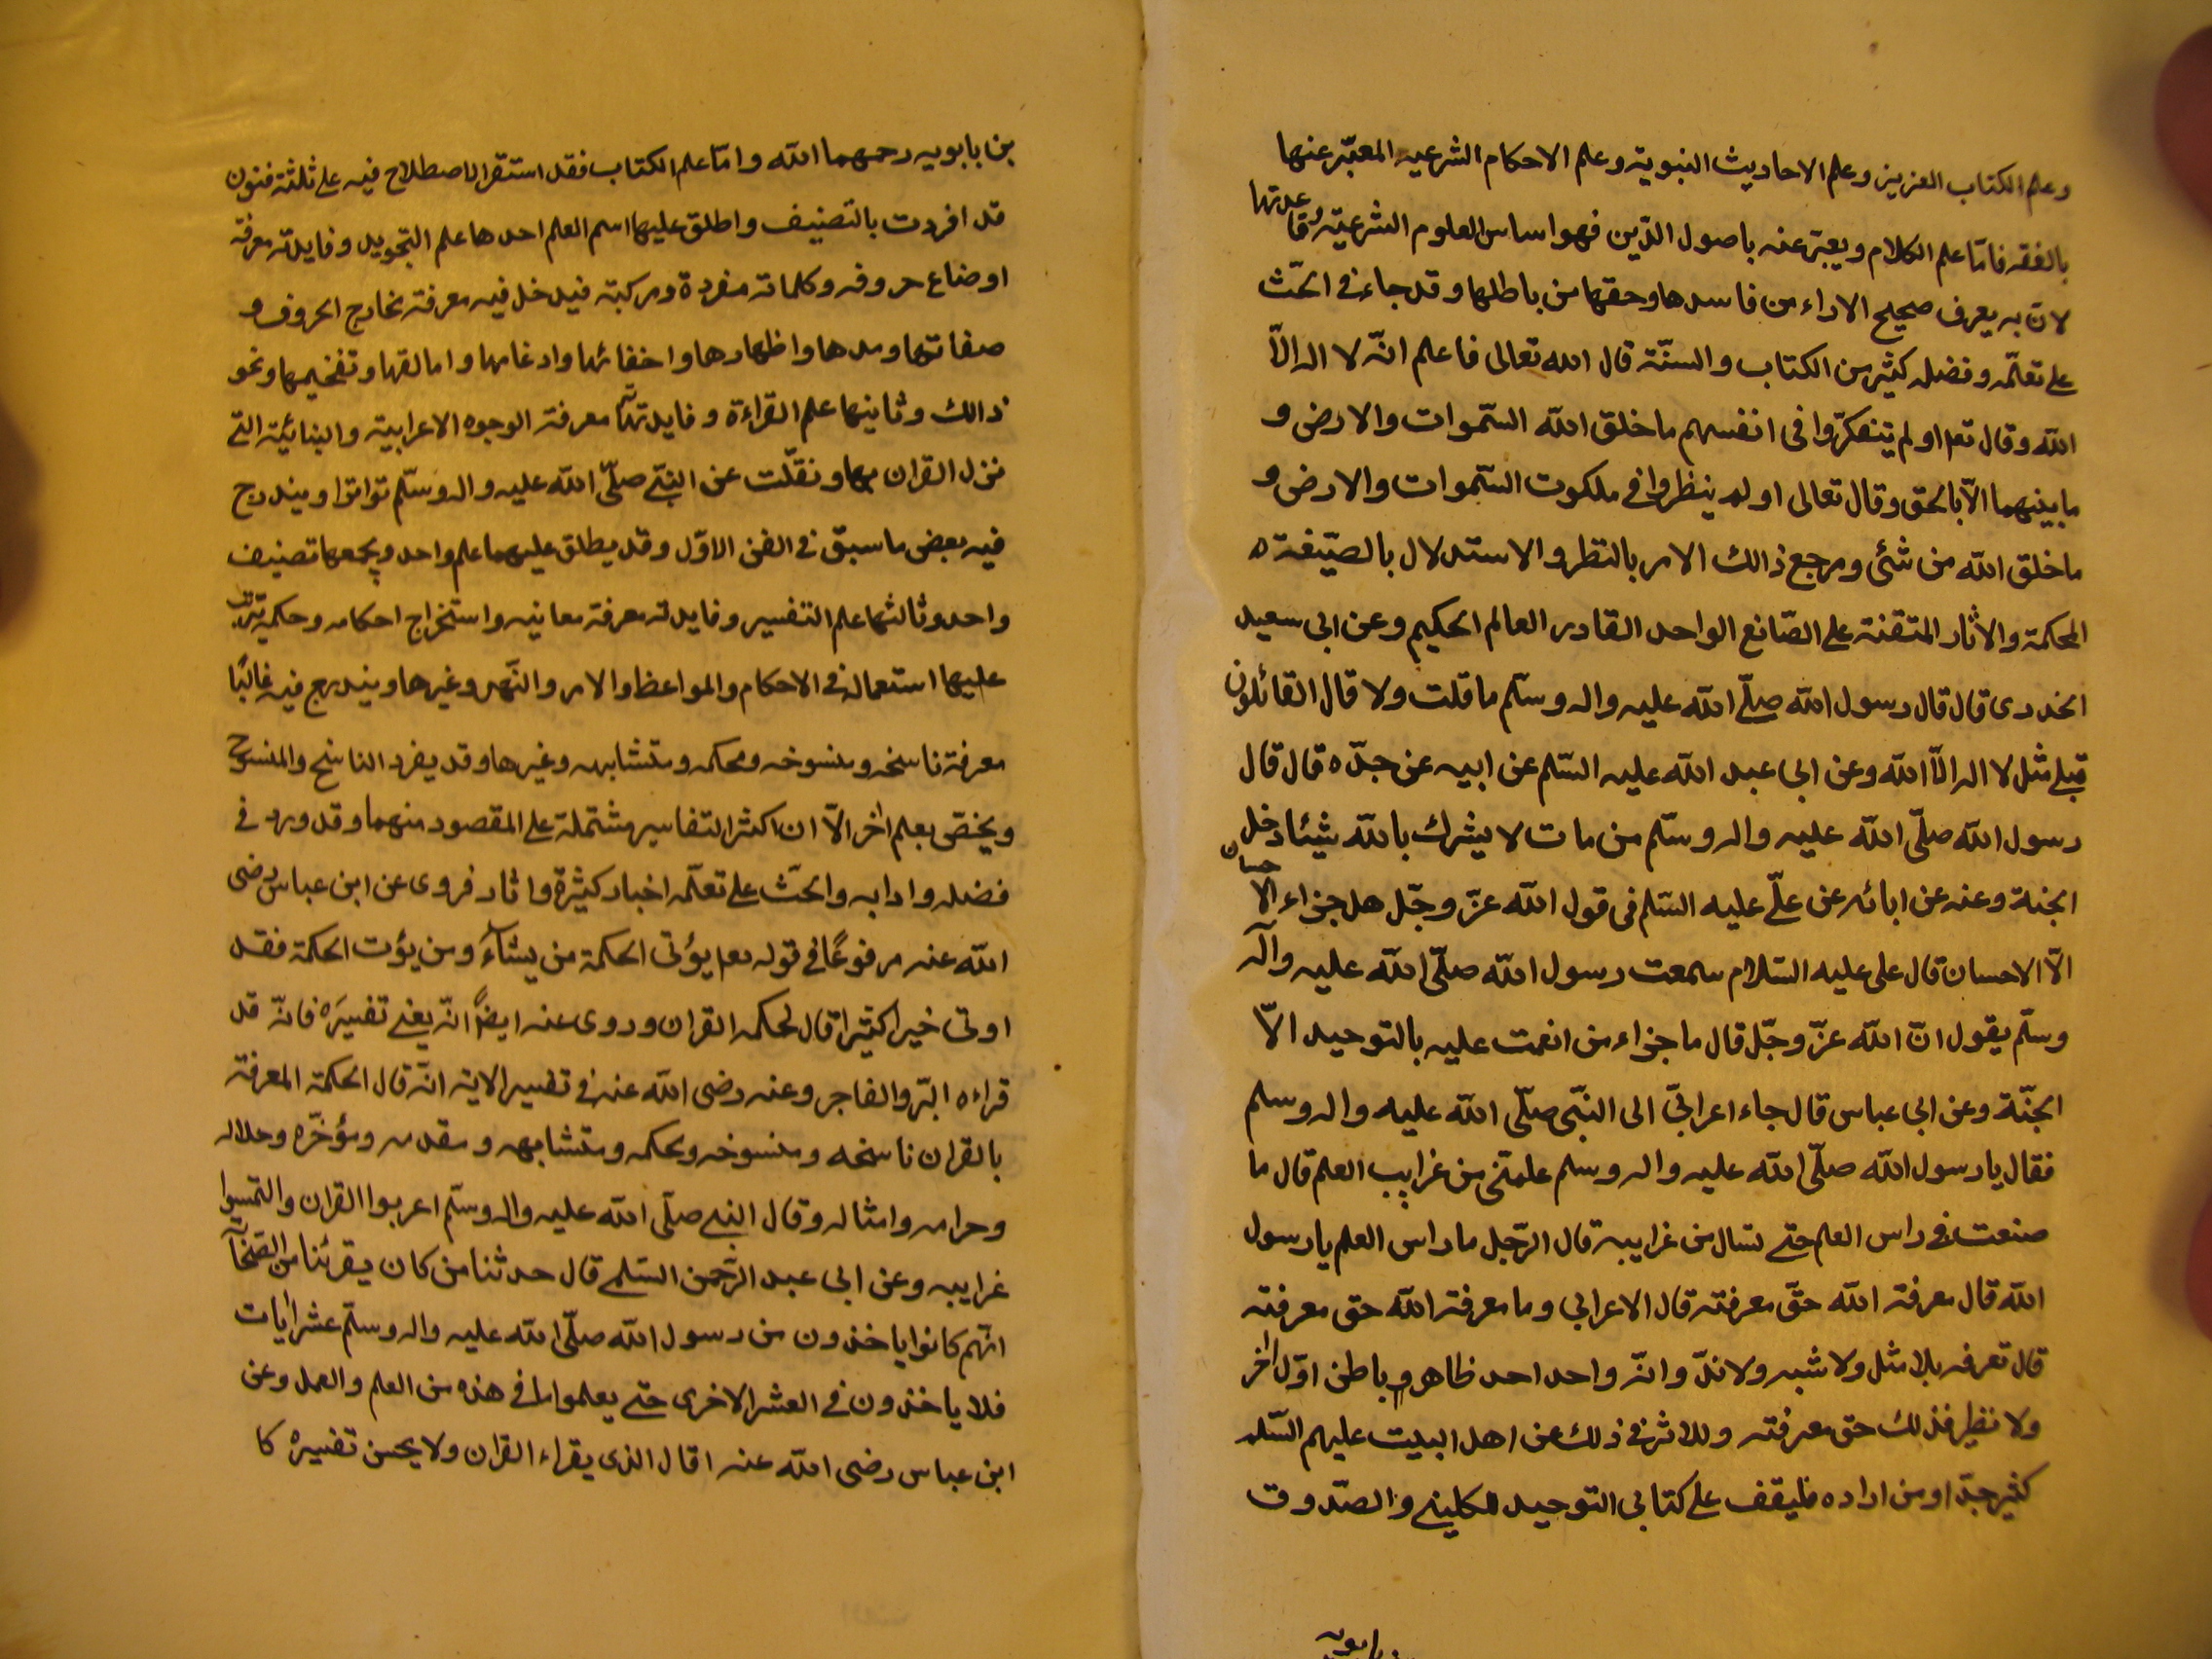 وعلم الكتاب العزيز وعلم الاحاديث النبوية وعلم الاحكام الشرعيه المعبّر عنها
بالفقه فامّا علم الكلام ويعبّر عنه باصول الدّين فهو اساس العلوم الشرعيّة وقاعدتها
لانّ به يعرف صحيح الاراء من فاسدها وحقها من باطلها وقد جاء في الحّث
على تعلّمه وفضله كثير من الكتاب والسنّة قال الله تعالى فاعلم انّه لا اله الاّ
الله وقال تعا اولم يتفكرّوا في انفسهم ما خلق الله السّموات والارض و
ما بينهما الاّ بالحق وقال تعالى اولم ينظروا في ملكوت السّموات والارض و
ما خلق الله من شئ ومرجع ذالك الامر بالنظر والاستدلال بالصّنعة
المحكمة والاثار المتقنة على الصّانع الواحد القادر العالم الحكيم وعن ابى سعيد
الخدرى قال قال رسول الله صلّى الله عليه واله وسلّم ما قلت ولا قال القائلون
قبلى مثل لا اله الاّ الله وعن ابى عبد الله عليه السّلم عن ابيه عن جدّه قال قال
رسول الله صلّى الله عليه واله وسلّم من مات لا يشرك بالله شيئا دخل
الجنة وعنه عن ابائه عن علّى عليه السّلم فى قول الله عزّ وجّل هل جزاء الاحسان
الاّ الاحسان قال على عليه السّلام سمعت رسول الله صلّى الله عليه وآله
وسلّم يقول انّ الله عزّ وجّل قال ما جزاء من انعمت عليه بالتوحيد الاّ
الجنّة وعن ابى عباس قال جاء اعرابىّ الى النّبى صلّى الله عليه واله وسلم
فقال يا رسول الله صلّى الله عليه واله وسلم علمّنى من غرايب العلم قال ما
صنعت في راس العلم حتى تسال من غرايبه قال الرّجل ما راس العلم يا رسول
الله قال معرفة الله حقّ معرفته قال الاعرابي وما معرفة الله حق معرفته
قال تعرفه بلا مثل ولا شبه ولا ندّ وانّه واحد احد ظاهر وباطن اوّل اخر
ولا نظير فذلك حق معرفته وللاثر في ذلك عن اهل البيت عليهم السّلم
كثير جدّا ومن اراده فليقف على كتابى التوحيد للكلينى والصّدوق
بن بابويه رحمهما الله وامّا علم الكتاب فقد استقرّ الاصطلاح فيه على ثلثة فنون
قد افردت بالتصنيف واطلق عليها اسم العلم احدها علم التجويد وفايدته معرفة
اوضاع حروفه وكلماته مفردة ومركبة فيدخل فيه معرفة مخارج الحروف و
صفاتها ومدها واظهارها واخفائها وادغامها وامالتها وتفخيمها ونحو
ذالك وثانيها علم القراءة وفايدتها معرفة الوجوه الاعرابية والبنائية التى
نزل القران بها ونقلّت عن النبّى صلّى الله عليه واله وسلّم تواترا ويندرج
فيه بعض ما سبق في الفن الاوّل وقد يطلق عليهما علم واحد ويجمعها تصنيف
واحد وثالثها علم التفسير وفايدته معرفة معانيه واستخراج احكامه وحكمه
عليها استعماله في الاحكام والمواعظ والامر والنّهى وغيرها ويندرج فيه غالبًا
معرفة ناسخه ومنسوخه ومحكمه ومتشابهه وغيرها وقد يفرد الناسخ والمنسوخ
ويختصّ بعلم اخر الاّ ان اكثر التفاسير مشتملة على المقصود منهما وقد ورد في
فضله وادابه والحّث على تعلّمه اخبار كثيرة واثار فروى عن ابن عباس رضى
الله عنه مرفوعًا في قوله تعا يؤتى الحكمة من يشاء ومن يؤت الحكمة فقد
اوتى خيرا كثيرا قال لحكمه القران وروى عنه ايضاً انّه يعنى تفسيَره فانّه قد
قراءه البّر والفاجر وعنه رضى الله عنه في تفسير الاية انّه قال الحكمة المعرفة
بالقران ناسخه ومنسوخه ومحكمه ومتشابهه ومقدمه ومؤخّره وحلاله
وحرامه وامثاله وقال النبى صلّى الله عليه واله وسلّم اعربوا القران والتمسوا
غرايبه وعن ابى عبد الرّحمن السّلمى قال حدثنا من كان يقرئنا من الصّحابة
انّهم كانوا ياخذون من رسول الله صلّى الله عليه واله وسلّم عشر ايات
فلا ياخذون في العشر الاخرى حتى يعلموا ما في هذه من العلم والعمل وعن
ابن عباس رضى الله عنه اقال الذى يقراء القران ولا يحسن تفسيره كا